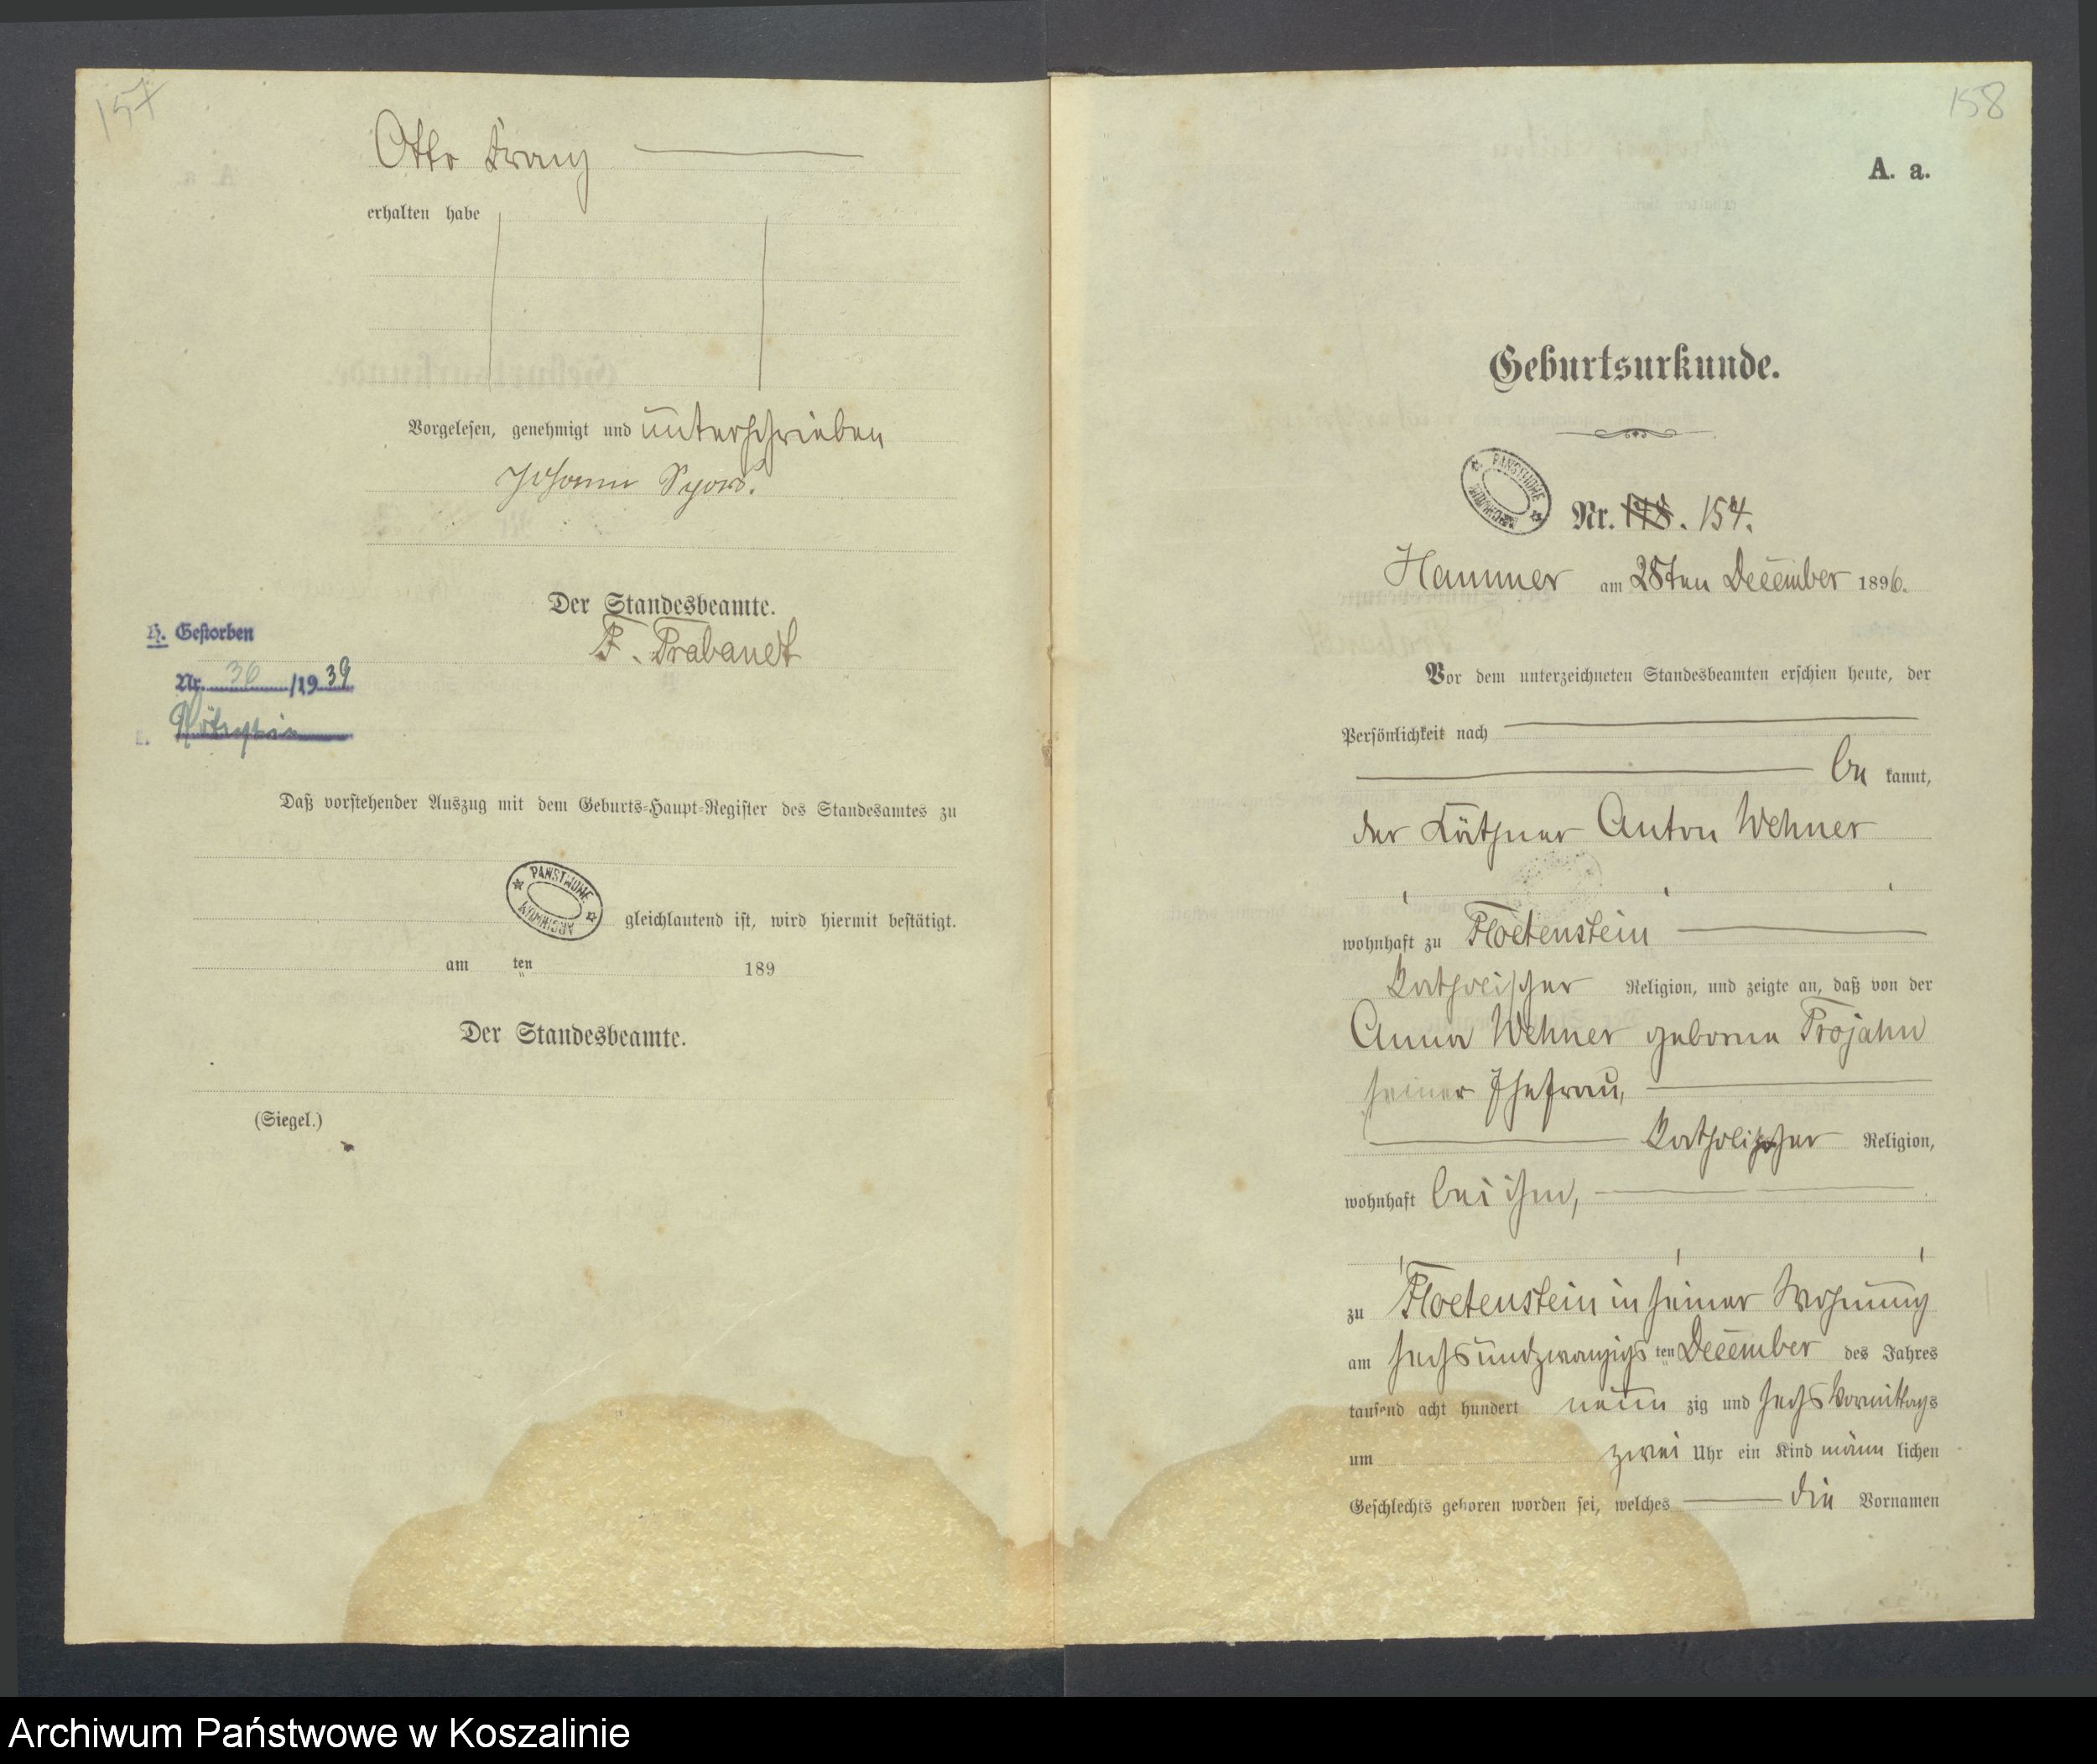 157
Otto Franz
erhalten habe
Vorgelesen, genehmigt und unterschrieben
Johann
Der Standesbeamte.
F. Prabanct
H. Gestorben
Nr. 30 /1939
Daß vorstehender Auszug mit dem Geburts-Haupt-Register des Standesamtes zu
PAŃSTWOWE ARCHIWUM
gleichlautend ist, wird hiermit bestätigt.
am ten 189
Der Standesbeamte.
(Siegel.)
158
A. a.
Geburtsurkunde.
PAŃSTWOWE ARCHIWUM
Nr. 148. 154.
Hammer am 28ten December 1896.
Vor dem unterzeichneten Standesbeamten erschien heute, der
Persönlichkeit nach
be kannt,
der Käthner Anton Wehner
wohnhaft zu Floetenstein
katholischer Religion, und zeigte an, daß von der
Anna Wehner geborne Projahn
seiner Ehefrau,
katholischer Religion,
wohnhaft bei ihm,
zu Floetenstein in seiner Wohnung
am sechsundzwanzigs ten December des Jahres
tausend acht hundert neun zig und sechs Vormittags
um zwei Uhr ein Kind männ lichen
Geschlechts geboren worden sei, welches die Vornamen
Archiwum Państwowe w Koszalinie